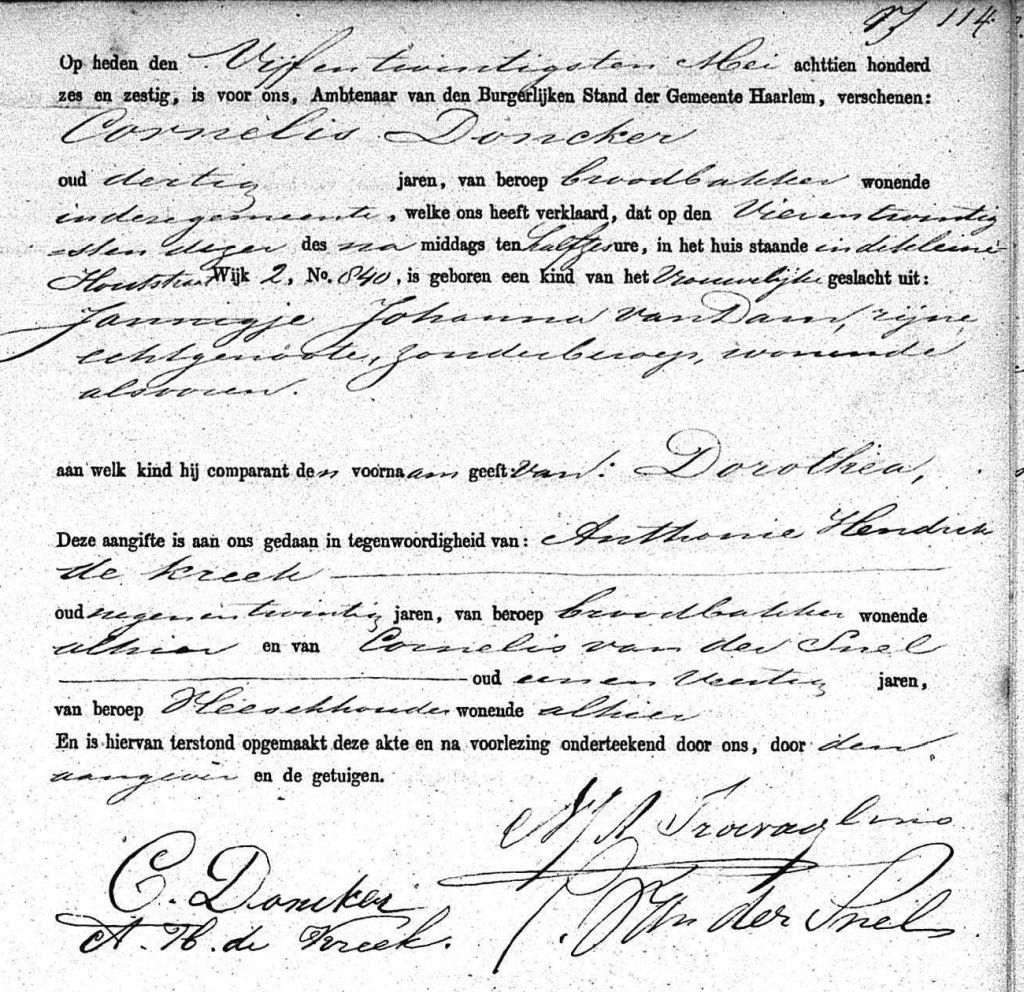 114
Op heden den Vijfentwintigsten Mei achttien honderd
zes en zestig, is voor ons, Ambtenaar van den Burgerlijken Stand der Gemeente Haarlem, verschenen:
Cornelis Doncker
oud dertig jaren, van beroep broodbakker wonende
in deze gemeente, welke ons heeft verklaard, dat op den Vierentwintig
sten dezer des na middags ten half ure, in het huis staande in de kleine
Houtstraat Wijk 2, No. 840, is geboren een kind van het Vrouwelijke geslacht uit:
Jannigje Johanna van Dam, zijne
echtgenoote, zonder beroep, wonende
alsvoren.
aan welk kind hij comparant den voornaam geeft van: Dorothea,
Deze aangifte is aan ons gedaan in tegenwoordigheid van: Anthonie Hendrik
de Kreek
oud negenentwintig jaren, van beroep broodbakker wonende
alhier en van Cornelis van der Snel
oud eenen Veertig jaren,
van beroep wonende alhier
En is hiervan terstond opgemaakt deze akte en na voorlezing onderteekend door ons, door den
aangever en de getuigen.
Travaglino
C. Doncker
A. H. de Kreek.
C. Van der Snel